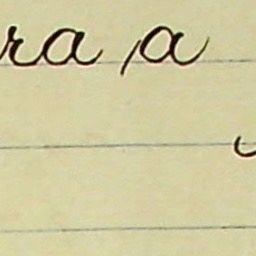 ra, a